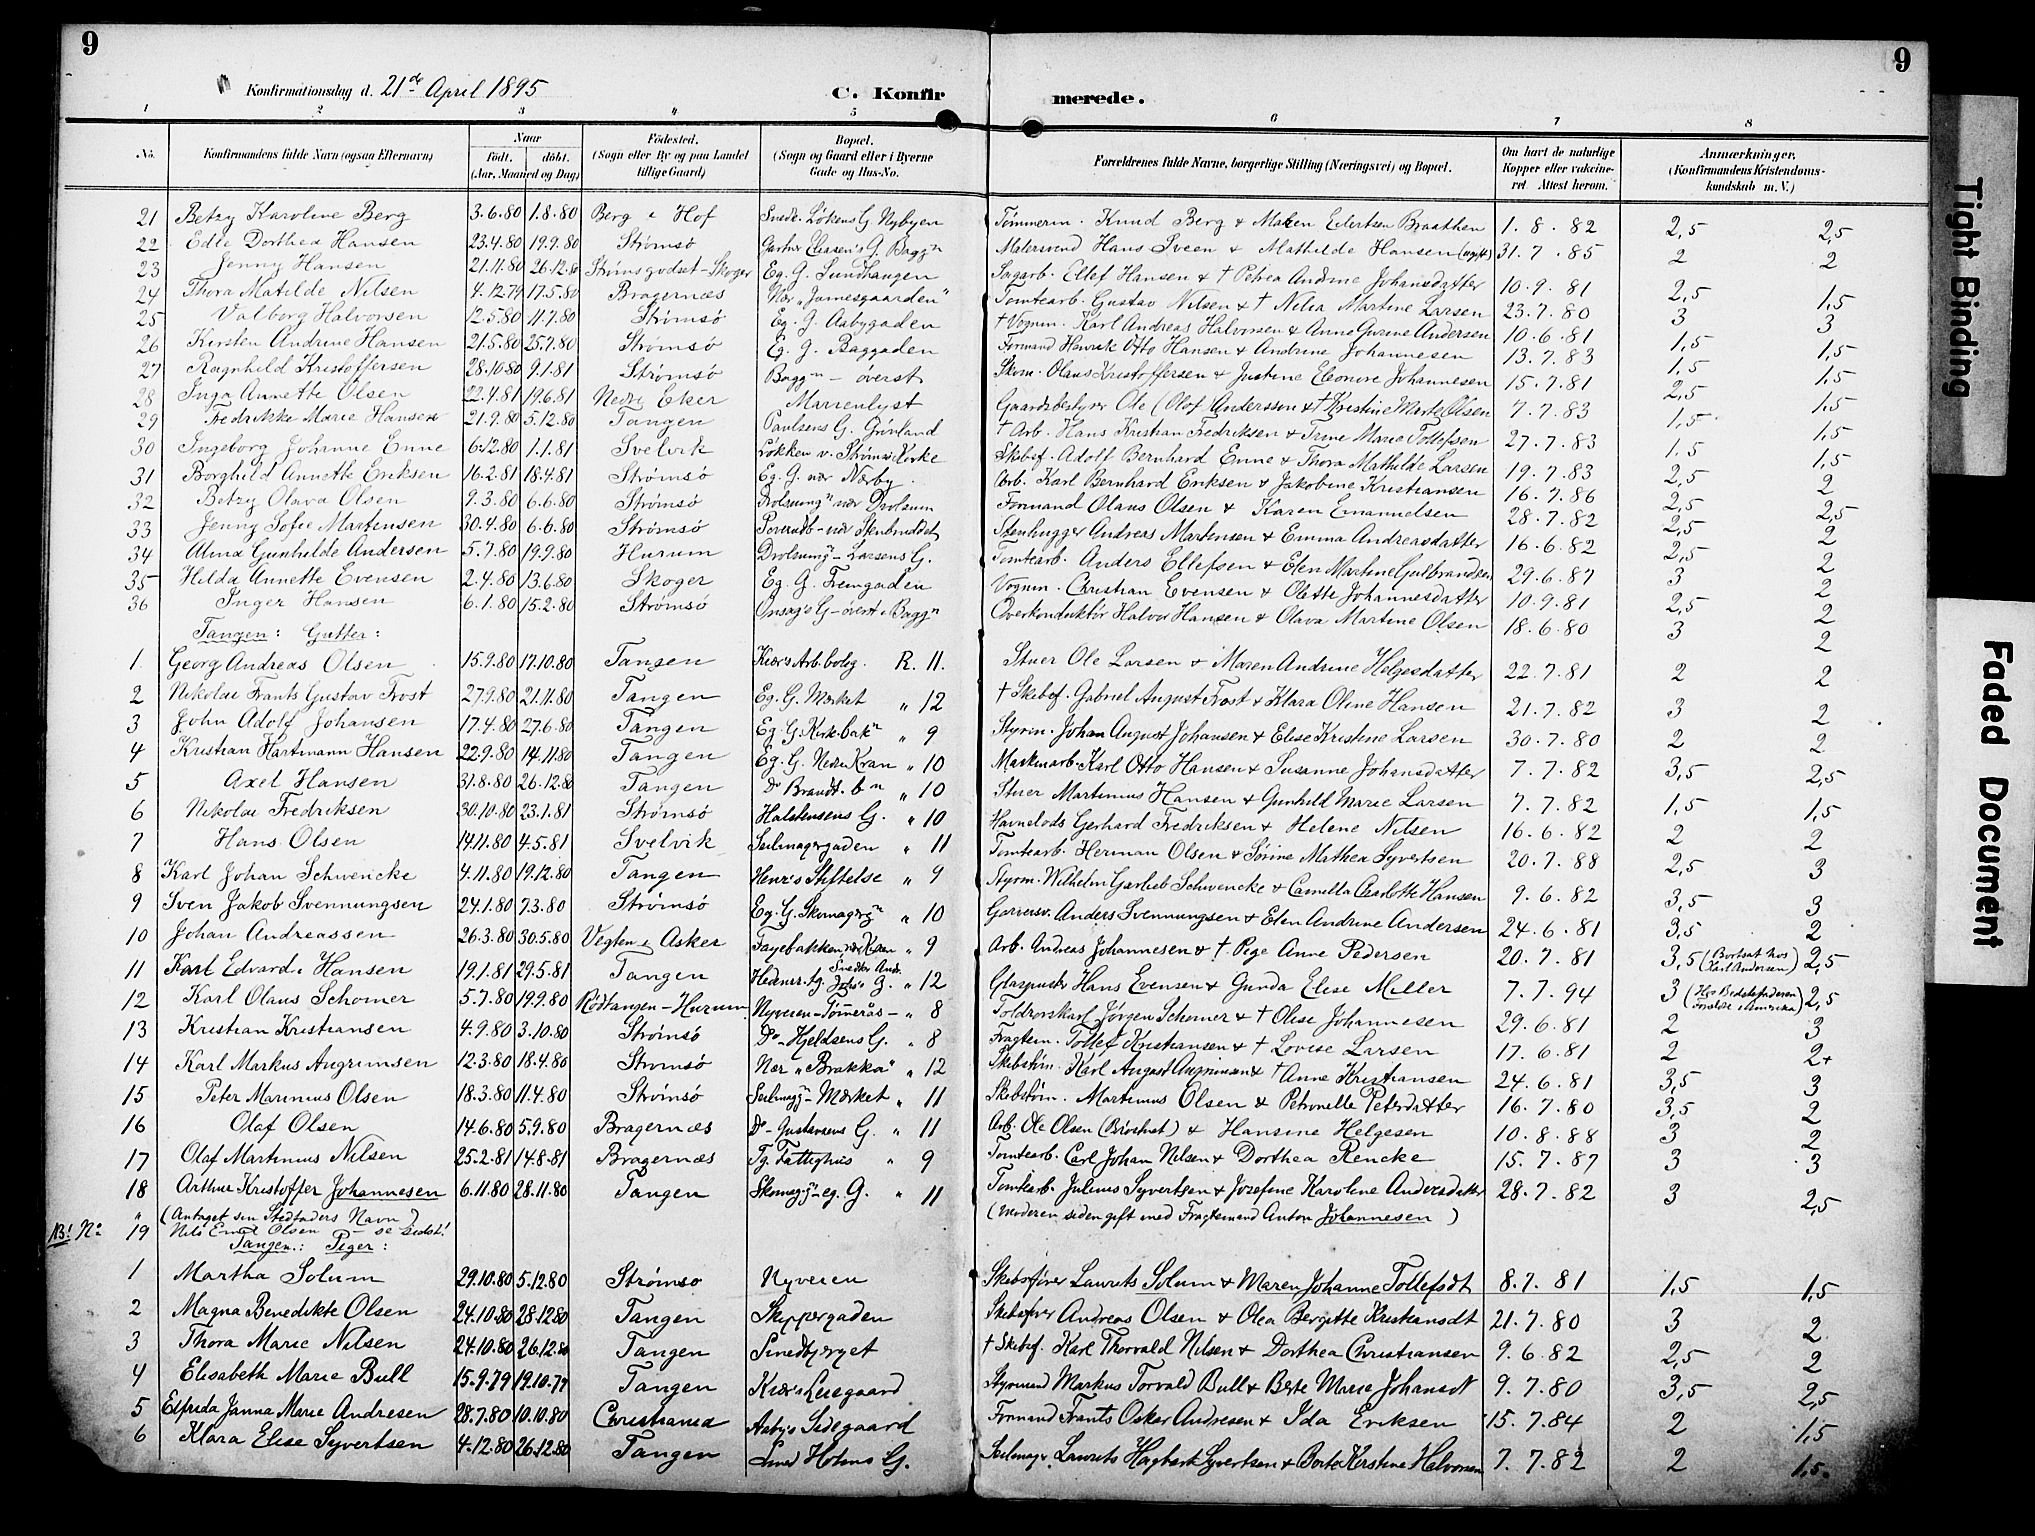 9
9
Konfirmationsdag d. 21de April 1895
C. Konfir merede.
1 2 3 4 5 6 7 8
No. Konfirmandens fulde Navn (ogsaa Efternavn) Naar født. døbt. (Aar, Maaned og Dag) Fødested. (Sogn eller By og paa Landet tillige Gaard) Bopæl. (Sogn og Gaard eller i Byerne Gade og Hus-No. Forældrenes fulde Navne, borgerlige Stilling (Næringsvei) og Bopæl. Om havt de naturlige Kopper eller vakcineret. Attest herom. Anmærkninger. (Konfirmandens Kristendomskundskab m. V.)
21 Betzy Karoline Berg 3.6.80 1.8.80 Berg i Hof Snedk. Løkens G. Nybyen Tømmerm. Knud Berg & Maren Eilertsen Braathen 1.8.82 2,5 2,5
22 Edle Dorthea Hansen 23.4.80 19.9.80 Strømsø Gartner Eliasen's G. Bagg Malersvend Hans Sveen & Mathilde Hansen (ugift) 31.7.85 2 2
23 Jenny Hansen 21.11.80 26.12.80 Strømsgodset-Skoger Eg. G. Sundhaugen Sagarb. Ellef Hansen & † Petrea Andrine Johansdatter 10.9.81 2,5 1,5
24 Thora Matilde Nilsen 4.12.79 17.5.80 Bragernæs Nær "Jamesgaarden" Tomtearb. Gustav Nilsen & † Nilia Martine Larsen 23.7.80 3 3
25 Valborg Halvorsen 12.5.80 11.7.80 Strømsø Eg. G. Aabygaden † Vognm. Karl Andreas Halvorsen & Anne Gurine Andersen 10.6.81 1,5 1,5
26 Kirsten Andrine Hansen 21.5.80 25.7.80 Strømsø Eg. G. Baggaden Formand Henrik Otto Hansen & Andrine Johannesen 13.7.83 1,5 1,5
27 Ragnhild Kristoffersen 28.10.80 9.1.81 Strømsø Bagg - øverst Skom. Olaus Kristoffersen & Justine Eleonore Johannesen 15.7.81 2,5 1,5
28 Inga Annette Olsen 22.4.81 19.6.81 Nedre Eker Marienlyst Gaardsbestyrer Ole (Olof) Andersson & † Kristine Marte Olsen 7.7.83 1,5 1,5
29 Fredrikke Marie Hansen 21.9.80 5.12.80 Tangen Paulsens G. Grønland † Arb. Hans Kristian Fredriksen & Trine Marie Tollefsen 27.7.83 1,5 1,5
30 Ingeborg Johanne Enne 6.12.80 1.1.81 Svelvik Løkken v. Strømsø Kirke Skbsf. Adolf Bernhard Enne & Thora Mathilde Larsen 19.7.83 2,5 2
31 Borghild Annette Eriksen 16.2.81 18.4.81 Strømsø Eg. G. nær Nærby Arb. Karl Bernhard Eriksen & Jakobine Kristiansen 16.7.86 2,5 2,5
32 Betzy Olava Olsen 9.3.80 6.6.80 Strømsø nær Drolsum Formand Olaus Olsen & Karen Emanuelsen 28.7.82 2,5 2
33 Jenny Sofie Martinsen 30.4.80 6.6.80 Strømsø nær Stenbruddet Stenhugger Andreas Martinsen & Emma Andreasdatter 16.6.82 2,5 2
34 Alma Gunhilde Andersen 5.7.80 19.9.80 Hurum Larsens G. Tomtearb. Anders Ellefsen & Elen Martine Gulbrandsen 29.6.87 3 2
35 Hilda Annette Evensen 2.4.80 13.6.80 Skoger Eg. G. Fremgaden Vognm. Christian Evensen & Olette Johannesdatter 10.9.81 2,5 2
36 Inger Hansen 6.1.80 15.2.80 Strømsø Onsag's G - øverst i Bagg Overkonduktør Halvor Hansen & Olava Martine Olsen 18.6.80 3 2
Tangen: Gutter:
1 Georg Andreas Olsen 15.9.80 17.10.80 Tangen Kiær's Arb.bolig. R. 11. Stuer Ole Larsen & Maren Andrine Helgesdatter 22.7.81 2 2
2 Nikolai Frants Gustav Frost 27.9.80 21.11.80 Tangen Eg. G. Mærket " 12 † Skibsf. Gabriel August Frost & Klara Oline Hansen 21.7.82 3 2
3 John Adolf Johansen 17.4.80 27.6.80 Tangen Eg. G. Kirkbak " 9 Styrm. Johan August Johansen & Elise Kristine Larsen 30.7.80 2 2
4 Kristian Hartmann Hansen 22.9.80 14.11.80 Tangen Eg. G. Nedre Kran " 10 Maskinarb. Karl Otto Hansen & Susanne Johansdatter 7.7.82 3,5 2,5
5 Axel Hansen 31.8.80 26.12.80 Tangen Do Brandt. b " 10 Stuer Martinius Hansen & Gunhild Marie Larsen 7.7.82 1,5 1,5
6 Nikolai Fredriksen 30.10.80 23.1.81 Strømsø Halstensens G. " 10 Havnelods Gerhard Fredriksen & Helene Nilsen 16.6.82 2 2
7 Hans Olsen 14.11.80 4.5.81 Svelvik Seilmagergaden " 11 Tomtearb. Herman Olsen & Sørine Mathea Syvertsen 20.7.88 2,5 3
8 Karl Johan Schwencke 4.11.80 19.12.80 Tangen Henr's Stiftelse " 9 Styrm. Wilhelm Garlieb Schwencke & Camilla Charlotte Hansen 9.6.82 3,5 3
9 Sven Jakob Svennungsen 24.1.80 7.3.80 Strømsø Eg. G. Skomagerg " 10 Garversv. Anders Svennungsen & Elen Andrine Andersen 24.6.81 3,5 2
10 Johan Andreassen 26.3.80 30.5.80 i Asker " 9 Arb. Andreas Johannesen & † Pige Anne Pedersen 20.7.81 3,5 (Bortsat hos Karl Andersen) 2,5
11 Karl Edvard Hansen 19.1.81 29.5.81 Tangen G. " 12 Glaspuster Hans Evensen & Gunda Elise Miller 7.7.94 3 (Hos Bedstefaderen Forældre i Amerika) 2,5
12 Karl Olaus Schomer 5.7.80 19.9.80 Rødtangen - Hurum Nyveien - Tømerås - " 8 Toldrorskarl Jørgen Schomer & † Olise Johannesen 29.6.81 2 3
13 Kristian Kristiansen 4.9.80 3.10.80 Strømsø Do - Hjeldsens G. " 8 Fragtem. Tollef Kristiansen & † Lovise Larsen 17.6.81 2 2+
14 Karl Markus Angrimsen 12.3.80 18.4.80 Strømsø Nær "Brakka" " 12 Skibstøm. Karl August Angrimsen & † Anne Kristiansen 24.6.81 3,5 3
15 Peter Marinius Olsen 18.3.80 11.4.80 Strømsø Seilmagg - Mærket " 11 Skibstøm. Martinius Olsen & Petronelle Petersdatter 16.7.80 3,5 2
16 Olaf Olsen 14.6.80 5.9.80 Bragernæs Do - Gustavsens G. " 11 Arb. Ole Olsen & Hansine Helgesen 10.8.88 3 2
17 Olaf Martinius Nilsen 25.2.81 14.8.81 Bragernæs Tg. Fattighus " 9 Tomtearb. Carl Johan Nilsen & Dorthea Rencke 15.7.87 3 3
18 Arthur Kristoffer Johannesen 6.11.80 28.11.80 Tangen Skomagg - eg. G. " 11 Tomtearb. Julius Syvertsen & Josefine Karoline Andersdatter 28.7.82 3 2,5
" (Antaget sin Stedfaders Navn) (Moderen siden gift med Fragtemand Anton Johannesen)
NB! No 19 Nils Ernst Olsen - se sidst!
Tangen: Piger:
1 Martha Solum 29.10.80 5.12.80 Strømsø Nyveien Skibsfører Laurits Solum & Maren Johanne Tollefsdt 8.7.81 1,5 1,5
2 Magna Benedikte Olsen 24.10.80 28.12.80 Tangen Skippergaden Skibsfører Andreas Olsen & Olea Bergitte Kristiansdt 21.7.80 3 2
3 Thora Marie Nilsen 24.10.80 26.12.80 Tangen Smedbjerget † Skibsf. Karl Thorvald Nilsen & Dorthea Christiansen 9.6.82 2,5 2
4 Elisabeth Marie Bull 15.9.79 19.10.79 Tangen Kiær's Leiegaard Styrmand Markus Torvald Bull & Berte Marie Johansdt 9.7.80 3,5 2,5
5 Elfrida Janna Marie Andresen 28.7.80 10.10.80 Christiania Aaby's Sidegaard Formand Frants Oskar Andresen & Ida Eriksen 15.7.84 2 1,5
6 Klara Elise Syvertsen 4.12.80 26.12.80 Tangen Smed Holms G. Seilmager. Laurits Hagbart Syvertsen & Berte Kirstine Halvorsen 7.7.82 2 1,5.
Tight Binding
Faded Document